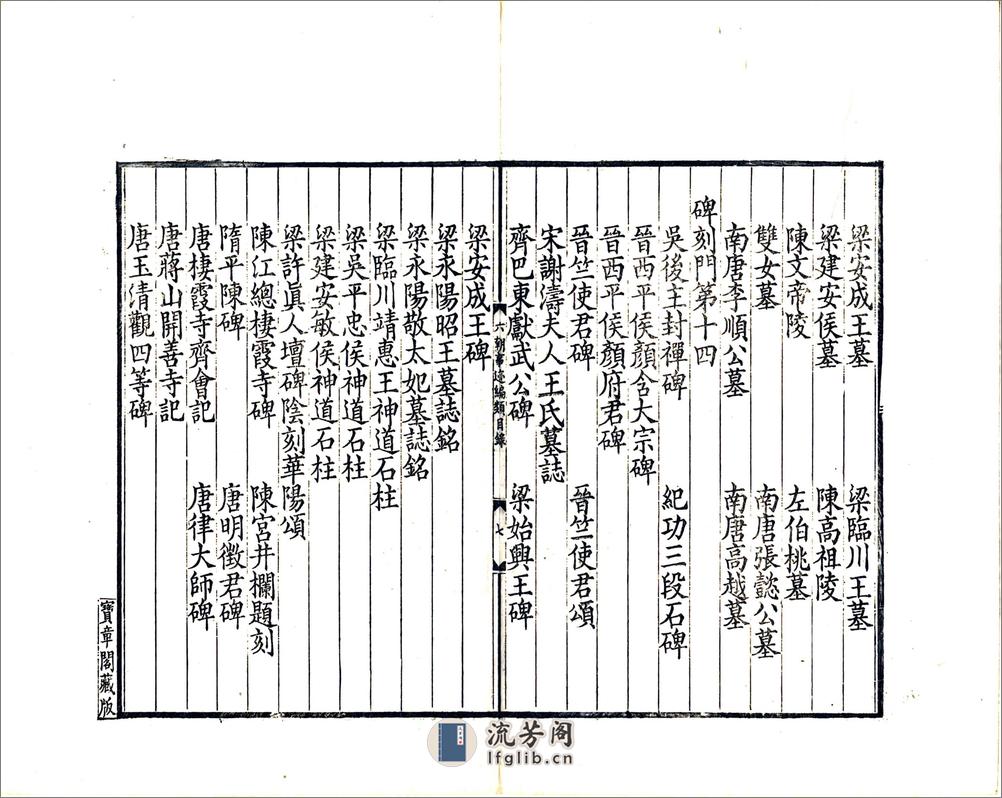 梁安成王墓　梁臨川王墓
梁建安侯墓　陳高祖陵
陳文帝陵　左伯桃墓
雙女墓　南唐張懿公墓
南唐李順公墓　南唐高越墓
碑刻門第十四
吳後主封禪碑　紀功三段石碑
晉西平侯顏含大宗碑
晉西平侯顏府君碑
晉竺使君碑　晉竺使君頌
宋謝濤夫人王氏墓誌
齊巴東獻武公碑　梁始興王碑
六朝事迹編類目錄　七
梁安成王碑
梁永陽昭王墓誌銘
梁永陽敬太妃墓誌銘
梁臨川靖惠王神道石柱
梁吳平忠侯神道石柱
梁建安敏侯神道石柱
梁許眞人壇碑陰刻華陽頌
陳江總棲霞寺碑　陳宮井欄題刻
隋平陳碑　唐明徵君碑
唐棲霞寺齊會記　唐律大師碑
唐蔣山開善寺記
唐玉清觀四等碑
寶章閣藏版
流芳阁
lfglib.cn